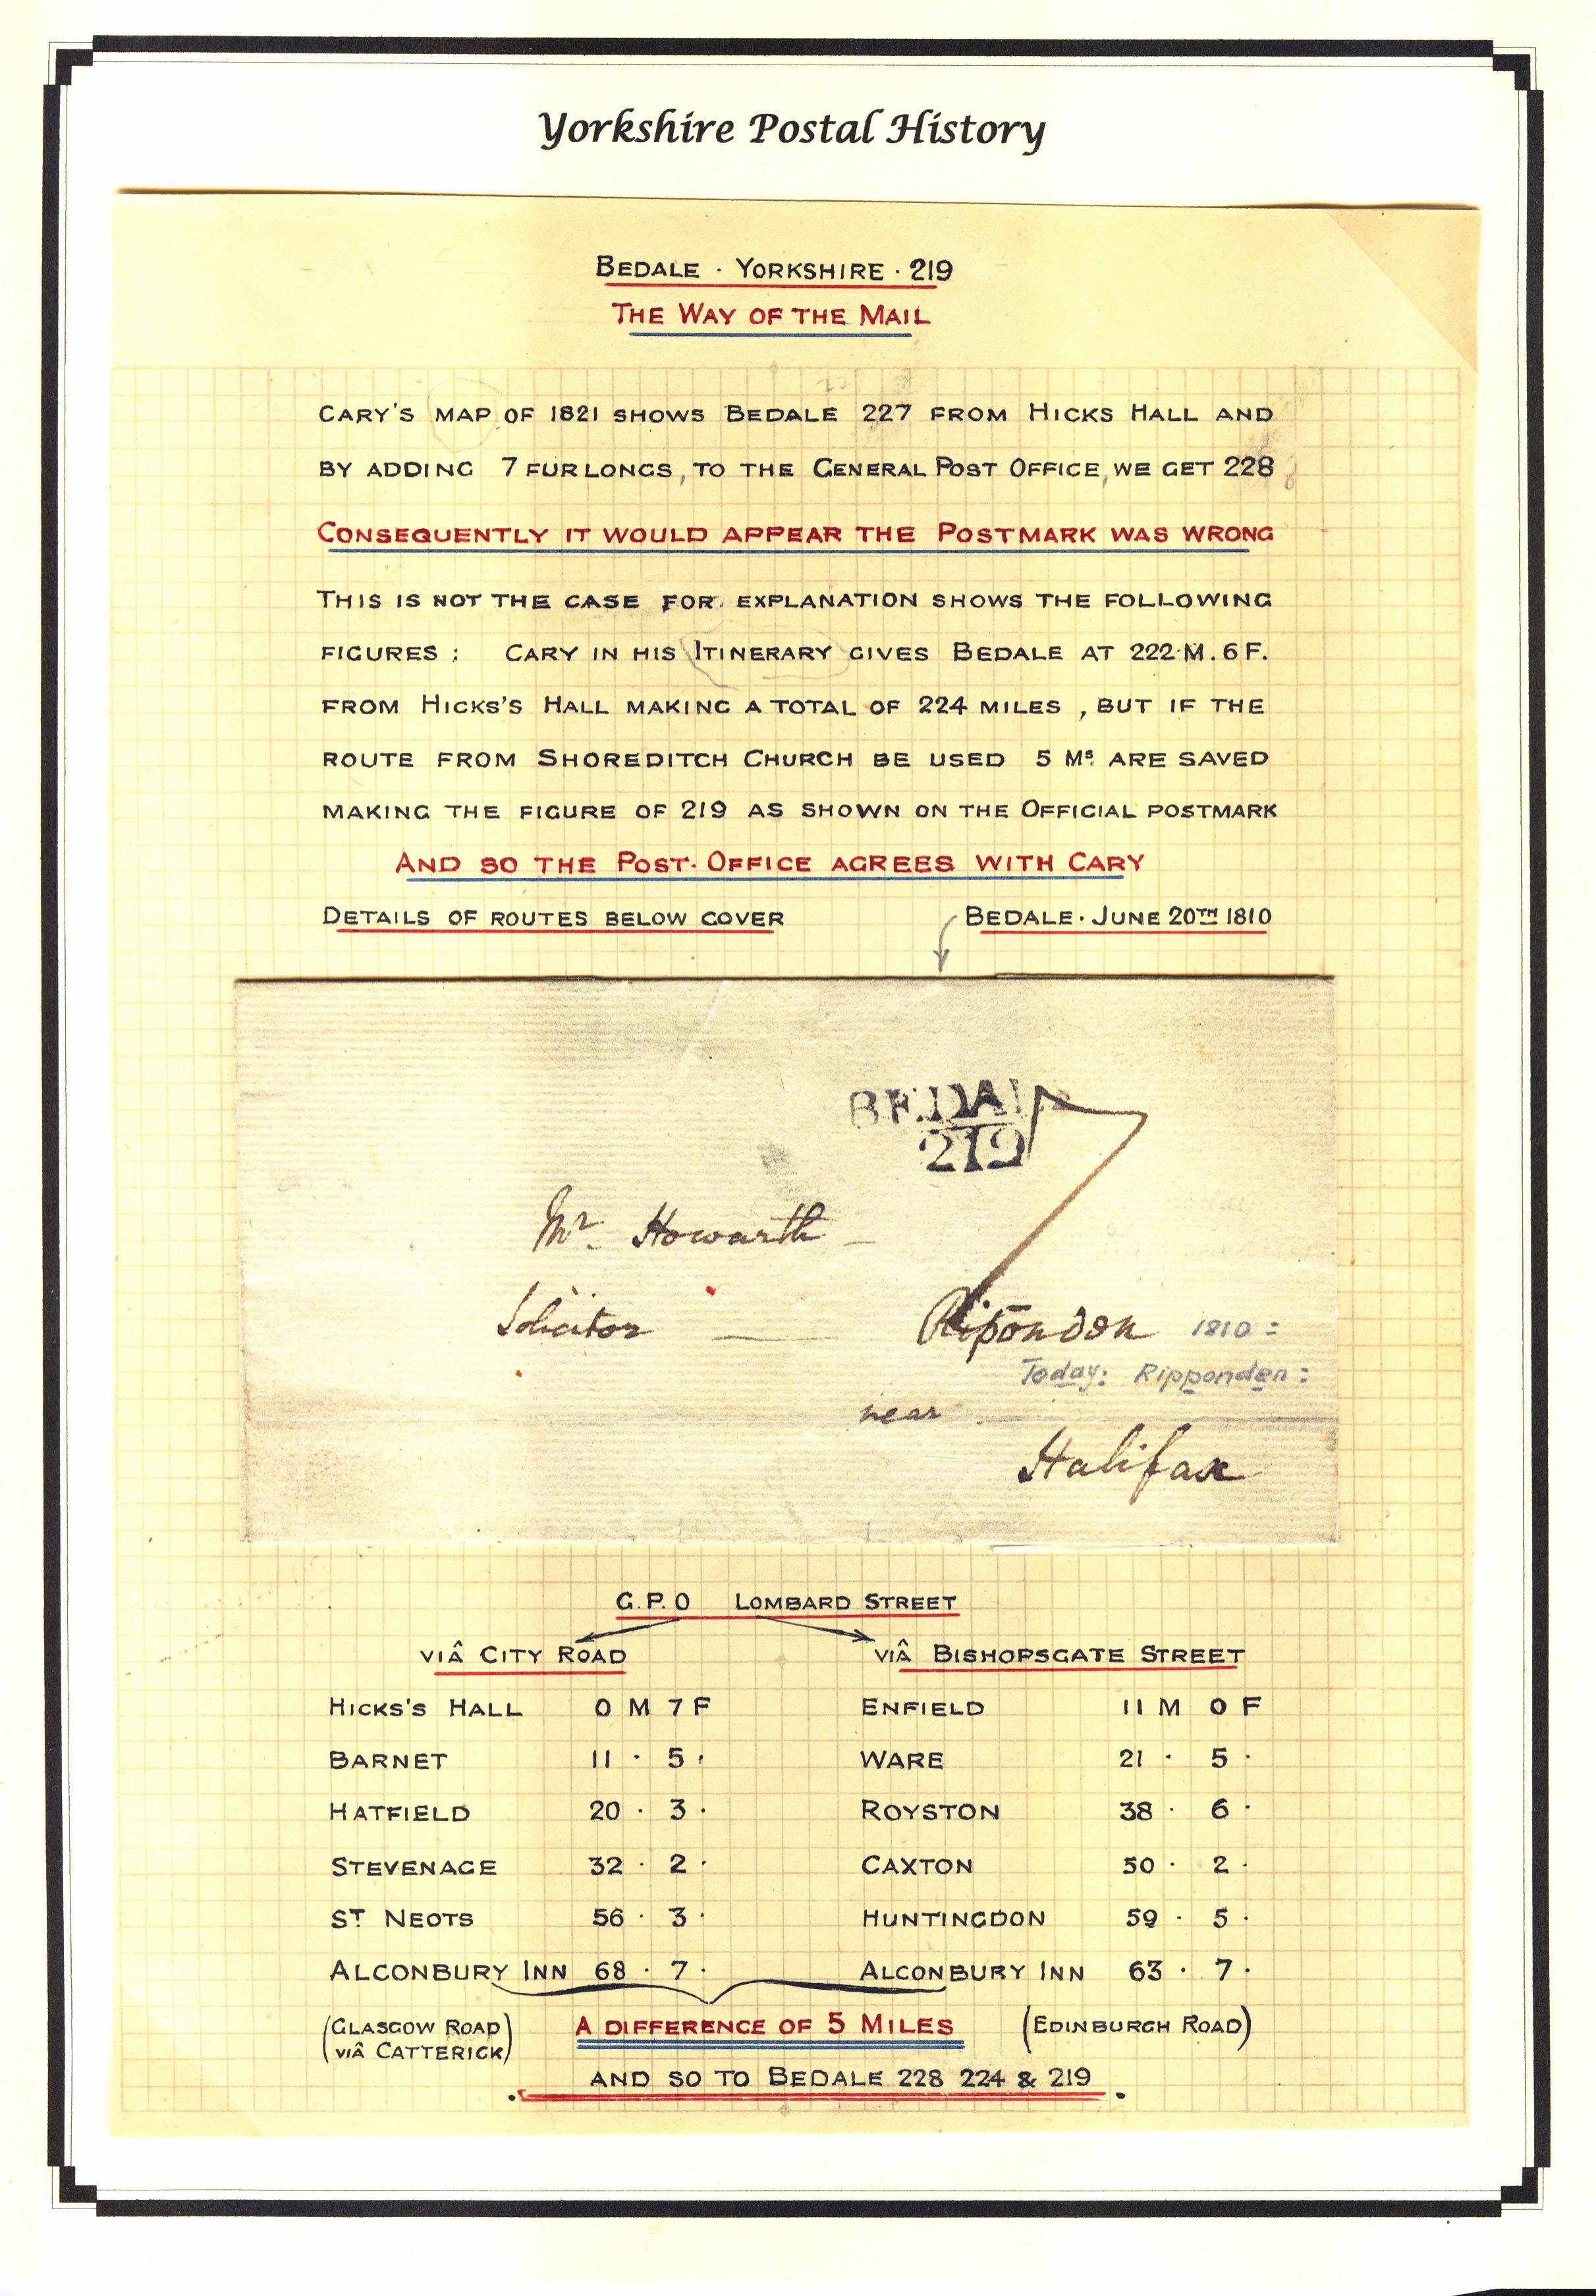 Yorkshire Postal History
BEDALE · YORKSHIRE · 219
THE WAY OF THE MAIL
CARY'S MAP OF 1821 SHOWS BEDALE 227 FROM HICKS HALL AND
BY ADDING 7 FURLONGS, TO THE GENERAL POST OFFICE, WE GET 228
CONSEQUENTLY IT WOULD APPEAR THE POSTMARK WAS WRONG
THIS IS NOT THE CASE FOR EXPLANATION SHOWS THE FOLLOWING
FIGURES : CARY IN HIS ITINERARY GIVES BEDALE AT 222·M.6F.
FROM HICKS'S HALL MAKING A TOTAL OF 224 MILES , BUT IF THE
ROUTE FROM SHOREDITCH CHURCH BE USED 5 Ms. ARE SAVED
MAKING THE FIGURE OF 219 AS SHOWN ON THE OFFICIAL POSTMARK
AND SO THE POST·OFFICE AGREES WITH CARY
DETAILS OF ROUTES BELOW COVER BEDALE · JUNE 20TH 1810
BEDAL
219
7
Mr. Howarth –
Solicitor — Ripondon 1810 :
Today: Ripponden :
near
Halifax
G.P.O LOMBARD STREET
VIÂ CITY ROAD VIÂ BISHOPSGATE STREET
HICKS'S HALL 0 M 7 F ENFIELD 11 M 0 F
BARNET 11 · 5 · WARE 21 · 5 ·
HATFIELD 20 · 3 · ROYSTON 38 · 6 ·
STEVENAGE 32 · 2 · CAXTON 50 · 2 ·
ST NEOTS 56 · 3 · HUNTINGDON 59 · 5 ·
ALCONBURY INN 68 · 7 · ALCONBURY INN 63 · 7 ·
(GLASGOW ROAD) A DIFFERENCE OF 5 MILES (EDINBURGH ROAD)
(VIÂ CATTERICK)
AND SO TO BEDALE 228 224 & 219